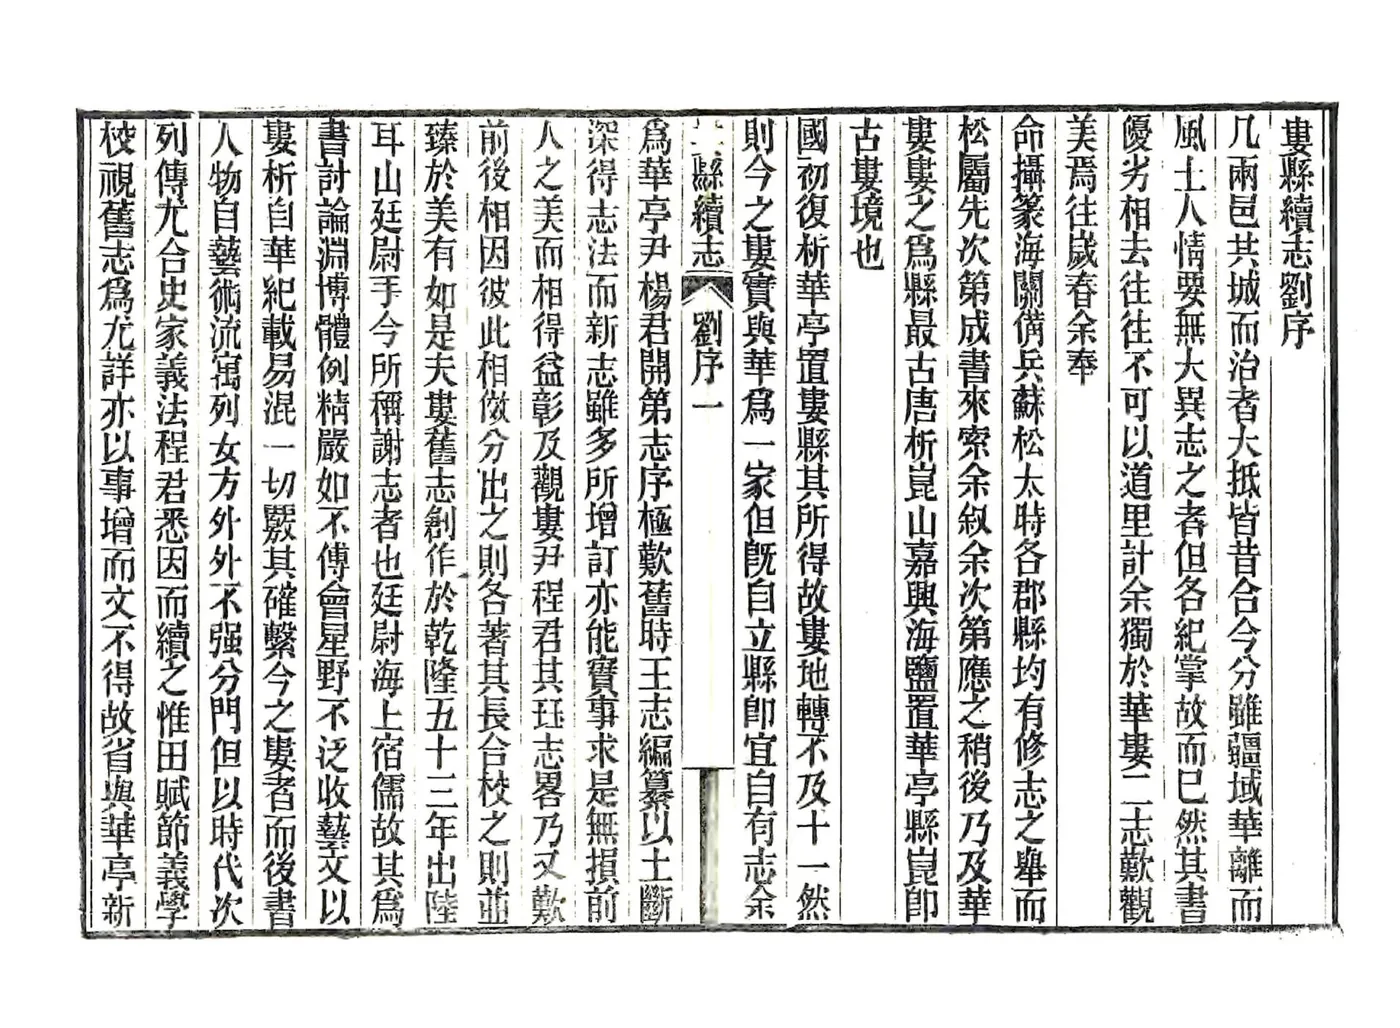 婁縣續志劉序
凡兩邑共城而治者大抵皆昔合今分雖疆域華離而
風土人情要無大異志之者但各紀掌故而已然其書
優劣相去往往不可以道里計余獨於華婁二志歎觀
美焉往歲春余奉
命攝篆海關備兵蘇松太時各郡縣均有修志之舉而
松屬先次第成書來索余叙余次第應之稍後乃及華
婁婁之爲縣最古唐析崑山嘉興海鹽置華亭縣崑卽
古婁境也
國初復析華亭置婁縣其所得故婁地轉不及十一然
則今之婁實與華爲一家但旣自立縣卽宜自有志余
縣續志 劉序 一
爲華亭尹楊君開第志序極歎舊時王志編纂以土斷
深得志法而新志雖多所增訂亦能實事求是無損前
人之美而相得益彰及觀婁尹程君其珏志畧乃又歎
前後相因彼此相倣分出之則各著其長合校之則並
臻於美有如是夫婁舊志創作於乾隆五十三年出陸
耳山廷尉手今所稱謝志者也廷尉海上宿儒故其爲
書討論淵博體例精嚴如不傅會星野不泛收藝文以
婁析自華紀載易混一切覈其確繫今之婁者而後書
人物自藝術流寓列女方外外不强分門但以時代次
列傳尤合史家義法程君悉因而續之惟田賦節義學
校視舊志爲尤詳亦以事增而文不得故省與華亭新